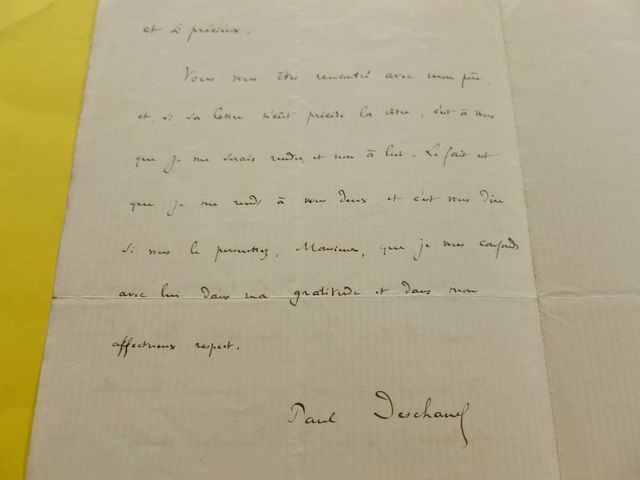 et si précieux.
Vous vous êtes rencontré avec mon père,
et, si sa lettre n'eût précédé la vôtre, c'est à vous
que je me serais rendu, et non à lui. Le fait est
que je me rends à vous deux, et c'est vous dire
si vous le permettez, Monsieur, que je vous confonds
avec lui dans ma gratitude et dans mon
affectueux respect.
Paul Deschanel